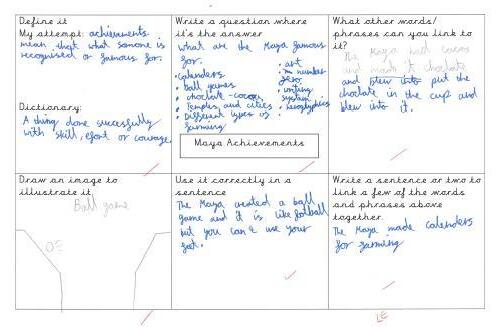 Define it
My attempt: achievements
mean that what somone is
recognised or famous for.
Dictionary:
A thing done succesfully
with skill, efort or courage.
Write a question where
it's the answer
what are the Maya famous
for.
• calenders
• ball games
• choclate - cocoa
• Temples and cities
• Different types of
farming
• art
• number
zero
• writing
system
• neoglyphics
Maya Achievements
What other words/
phrases can you link to
it?
The Maya had cocoa
and made it choclate
and blew into put the
choclate in the cup and
blew into it.
Draw an image to
illustrate it
Ball game
Use it correctly in a
sentence
The Maya created a ball
game and it is like football
but you can't use your
feet.
Write a sentence or two to
link a few of the words
and phrases above
together
The Maya made calenders
for farming
LE